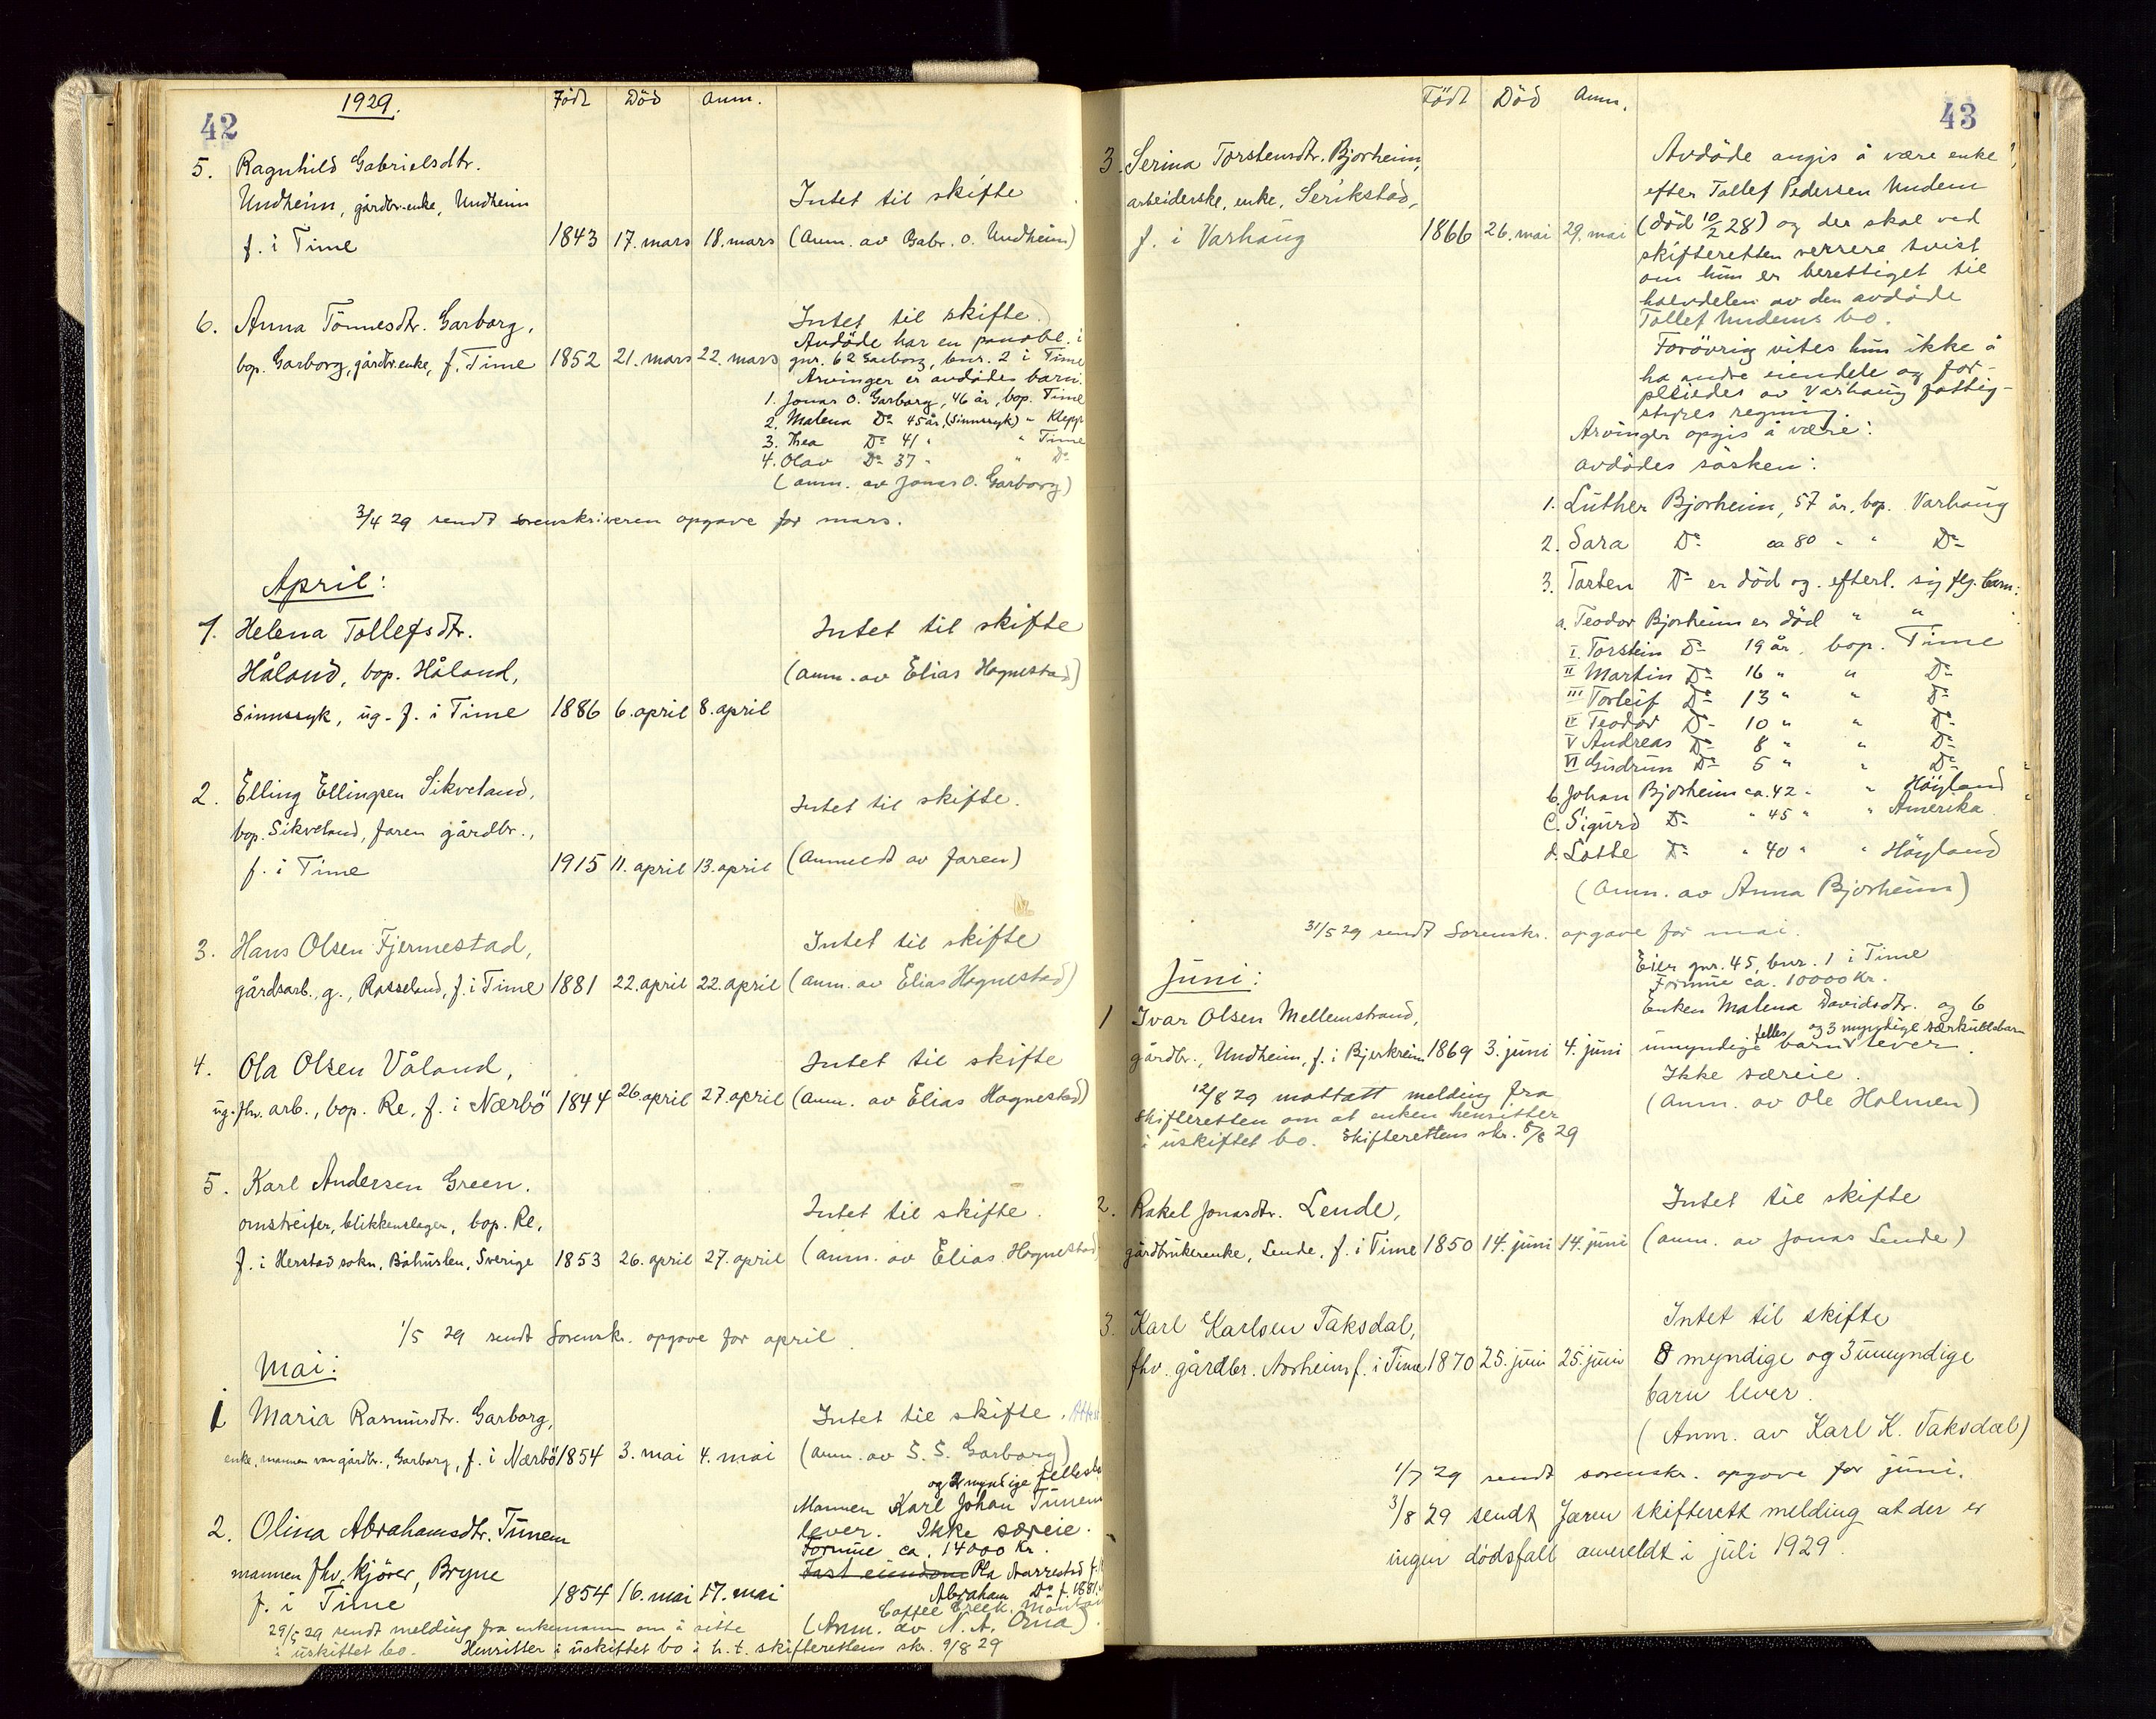 42
1929.
Født Død Anm.
5. Ragnhild Gabrielsdtr.
Undheim, gårdbr.enke, Undheim
f. i Time 1843 17. mars 18. mars
Intet til skifte
(Anm. av Gabr. O. Undheim)
6. Anna Tønnesdtr. Garborg,
bop. Garborg, gårdbr.enke, f. Time 1852 21. mars 22. mars
Intet til skifte
Avdøde har en panobl. i
gnr. 62 Garborg, bnr. 2 i Time
Arvinger er avdødes barn:
1. Jonas O. Garborg, 46 år, bop. Time
2. Malena Do 45 år, (Sinnssyk) " Klepp
3. Thea Do 41 " " Time
4. Olav Do 37 " " Do
(anm. av Jonas O. Garborg)
3/4 29 sendt sorenskriveren opgave for mars.
April:
1. Helena Tollefsdtr.
Håland, bop. Håland,
Sinnssyk, ug. f. i Time 1886 6. april 8. april
Intet til skifte
(anm. av Elias Hognestad)
2. Elling Ellingsen Sikveland,
bop. Sikveland, faren gårdbr.,
f. i Time 1915 11. april 13. april
Intet til skifte.
(Anmeldt av faren)
3. Hans Olsen Fjermestad,
gårdsarb., g., Rosseland, f. i Time 1881 22. april 22. april
Intet til skifte
(anm. av Elias Hognestad)
4. Ola Olsen Våland,
ug. fhv. arb., bop. Re, f. i Nærbø 1844 26. april 27. april
Intet til skifte
(anm. av Elias Hognestad)
5. Karl Andersen Green.
omstreifer, blikkenslager, bop. Re,
f. i Herstad sokn, Båhuslen, Sverige 1853 26. april 27. april
Intet til skifte.
(anm. av Elias Hognestad
1/5 29 sendt Sorenskr. opgave for april.
Mai:
1 Maria Rasmusdtr. Garborg,
enke, mannen var gårdbr., Garborg, f. i Nærbø 1854 3. mai 4. mai
Intet til skifte.
(anm. av S. S. Garborg)
2. Olina Abrahamsdtr. Tunem
mannen fhv. kjører, Bryne
f. i Time 1854 16. mai 17. mai
og 2 myndige
Mannen Karl Johan Tunem
lever. Ikke særeie.
Formue ca. 14000 Kr.
Fast eiendom Ola
Abraham Do f. 1881
Coffee Creek,
(Anm. av N. A. Orna)
29/5 29 sendt melding fra enkemann om å sitte
i uskiftet bo. Hensitter i uskiftet bo i h.t. skifterettens skr. 9/8 29
43
Født Død Anm.
3. Serina Torstensdtr. Bjorheim,
arbeiderske, enke, Serikstad,
f. i Varhaug 1866 26. mai 29. mai
Avdøde angis å være enke
efter Tollef Pedersen Undem
(død 10/2 28) og der skal ved
skifteretten verrere tvist
om hun er berettiget til
halvdelen av den avdøde
Tollef Undems bo.
Forøvrig vites hun ikke å
ha andre eiendele og for-
pleiedes av Varhaug fattig-
styres regning.
Arvinger opgis å være:
avdødes søsken:
1. Luther Bjorheim, 57 år, bop. Varhaug
2. Sara Do ca 80 " " Do
3. Torten Do er død og efterl. sig flg. barn:
a. Teodor Bjorheim er død " "
I. Torstein Do 19 år, bop. Time
II Martin Do 16 " " Do
III Torleif Do 13 " " Do
IV Teodor Do 10 " " Do
V Andreas Do 8 " " Do
VI Gudrun Do 5 " " Do
b. Johan Bjorheim ca. 42 " " Høyland
c. Sigurd Do " 45 " " Amerika
d. Lotte Do " 40 " " Høyland
(Anm. av Anna Bjorheim)
31/5 29 sendt Sorenskr. opgave for mai.
Juni:
1 Ivar Olsen Mellemstrand,
gårdbr., Undheim, f. i Bjerkreim 1869 3. juni 4. juni
Eier gnr. 45, bnr. 1 i Time
Formue ca. 10000 Kr.
Enken Malena Davidsdtr. og 6
felles og 3 myndige særkullsbarn
umyndige barn lever.
Ikke særeie.
(Anm. av Ole Holmen)
12/8 29 mottatt melding fra
skifteretten om at enken hensitter
i uskiftet bo. Skifterettens skr. 5/8 29
2. Rakel Jonasdtr. Lende,
gårdbrukerenke, Lende, f. i Time 1850 14. juni 14. juni
Intet til skifte
(anm. av Jonas Lende)
3. Karl Karlsen Taksdal,
fhv. gårdbr. Avrheim f. i Time 1870 25. juni 25. juni
Intet til skifte
8 myndige og 3 umyndige
barn lever.
(Anm. av Karl K. Taksdal)
1/7 29 sendt sorenskr. opgave for juni.
3/8 29 sendt Jæren skifterett melding at der er
ingen dødsfall anmeldt i juli 1929.